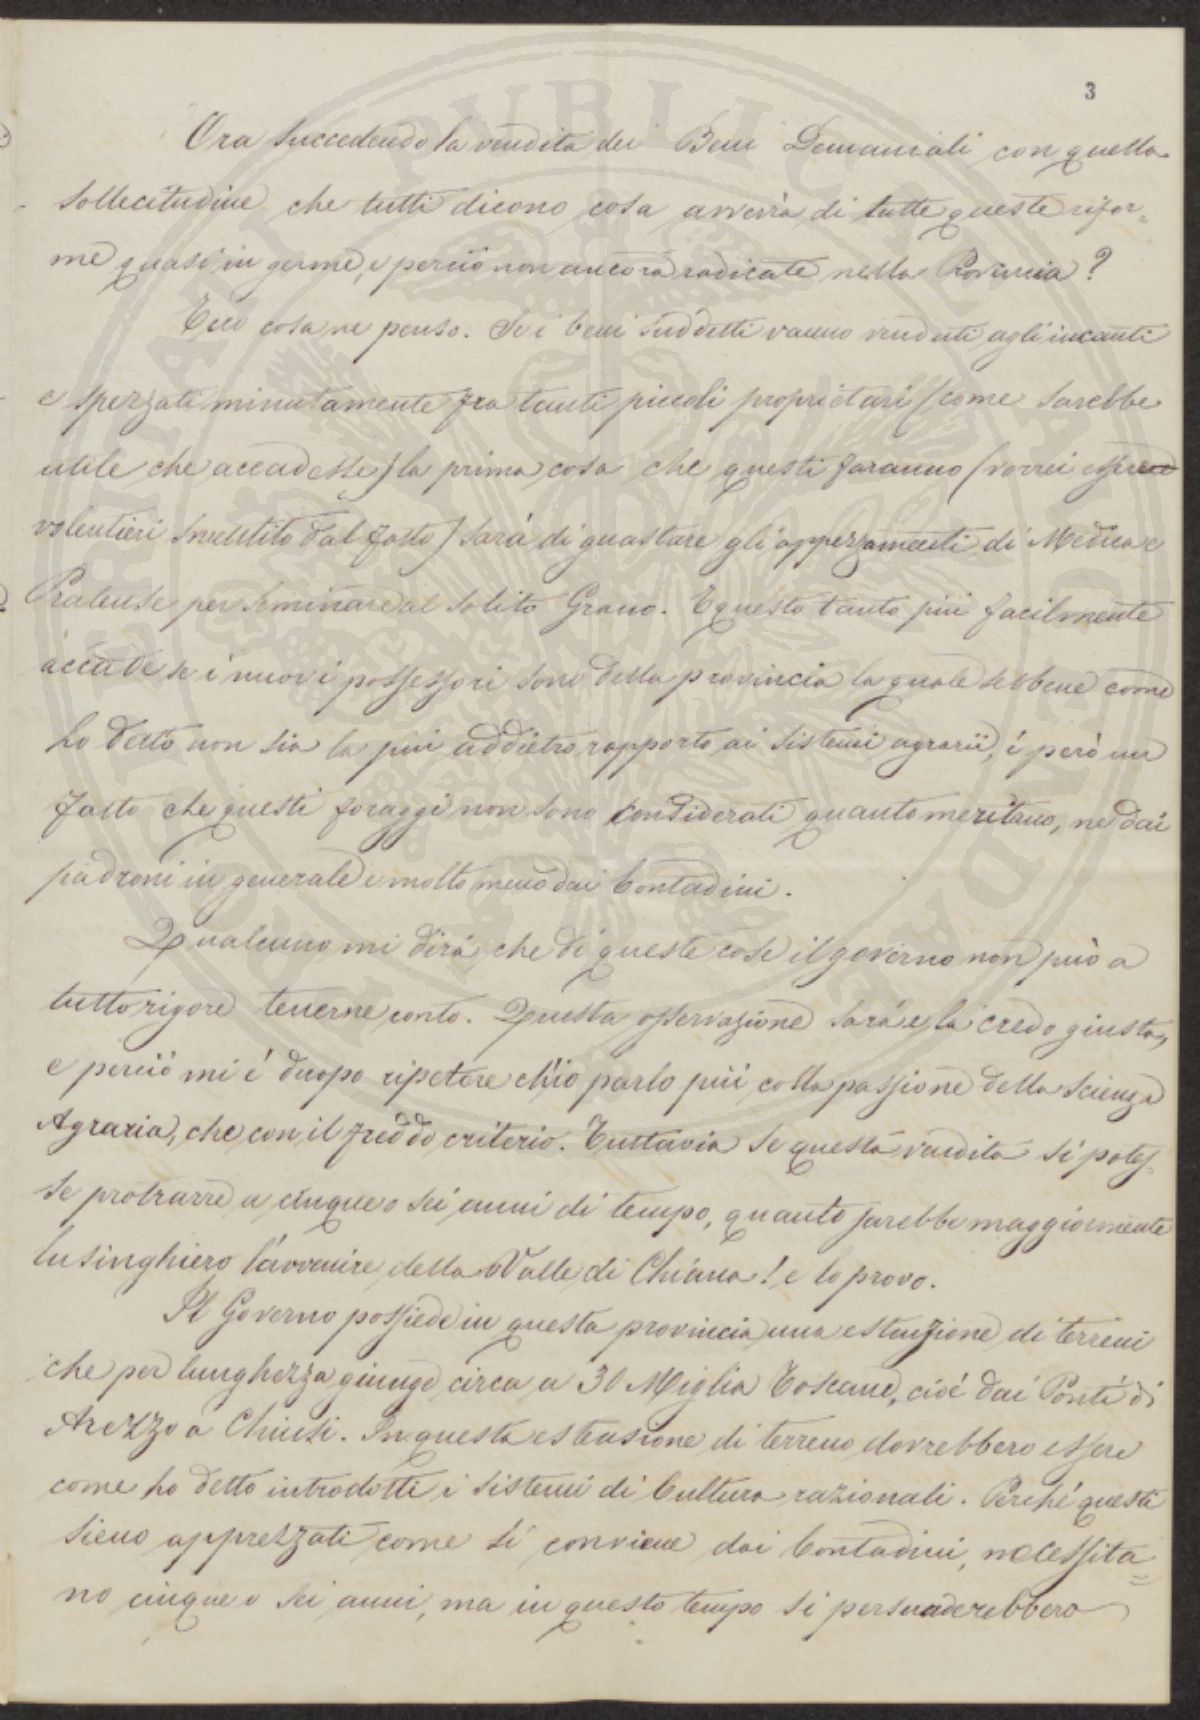 3
Ora succedendo la vendita dei Beni Demaniali con quella
sollecitudine che tutti dicono cosa avverrà di tutte queste rifor=
me quasi in germe, e perciò non ancora radicate nella Provincia?
Ecco cosa ne penso. Se i beni suddetti vanno venduti agli incanti
e spezzati minutamente fra tanti piccoli proprietari (come sarebbe
utile che accadesse) la prima cosa che questi faranno (vorrei essere
volentieri smentito dal fatto) sarà di guastare gli appezzamenti di Medica e
Pratense per seminare al solito Grano. E questo tanto più facilmente
accade se i nuovi possessori sono della provincia la quale sebbene come
ho dato non sia la più addietro rapporto ai sistemi agrarii, é però un
fatto che questi foraggi non sono considerati quanto meritano, ne dai
padroni in generale e molto meno dai Contadini.
Qualcuno mi dirà che di queste cose il governo non può a
tutto rigore tenerne conto. Questa osservazione sarà e la credo giusta,
e perciò mi é duopo ripetere ch'io parlo più colla passione della Scienza
Agraria, che con il freddo criterio. Tuttavia se questa vendita si potes=
se protrarre a cinque o sei anni di tempo, quanto sarebbe maggiormente
lusinghiero l'avvenire della Valle di Chiana! e lo provo.
Il Governo possiede in questa provincia una estenzione di terreni
che per lunghezza giunge circa a 30 Miglia Toscane, cioé dai Ponti di
Arezzo a Chiusi. In questa estensione di terreno dovrebbero essere
come ho detto introdotti i sistemi di Cultura razionali. Perché questi
sieno apprezzati come si conviene dai Contadini, necessita=
no cinque o sei anni, ma in questo tempo si persuaderebbero